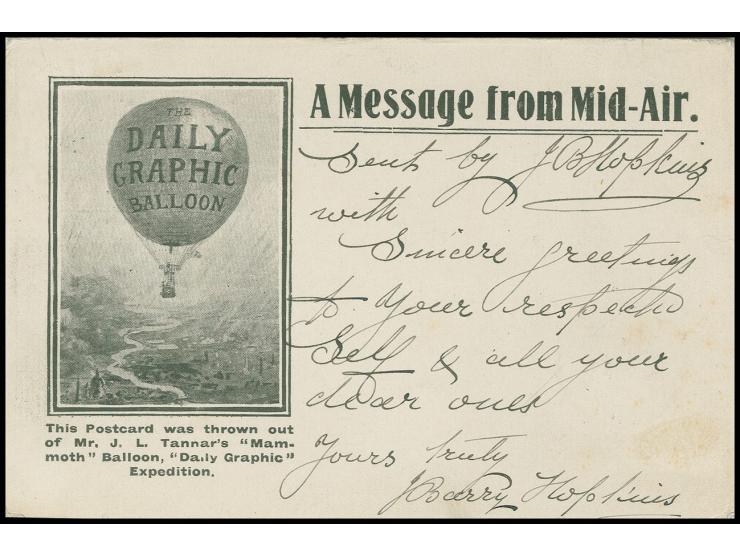 THE
DAILY
GRAPHIC
BALLOON
This Postcard was thrown out
of Mr. J. L. Tannar's "Mam-
moth" Balloon, "Daily Graphic"
Expedition.
A Message from Mid-Air.
Sent by J B Hopkins
with
Sincere greetings
to your respected
Self & all your
dear ones
Yours truly
J Barry Hopkins